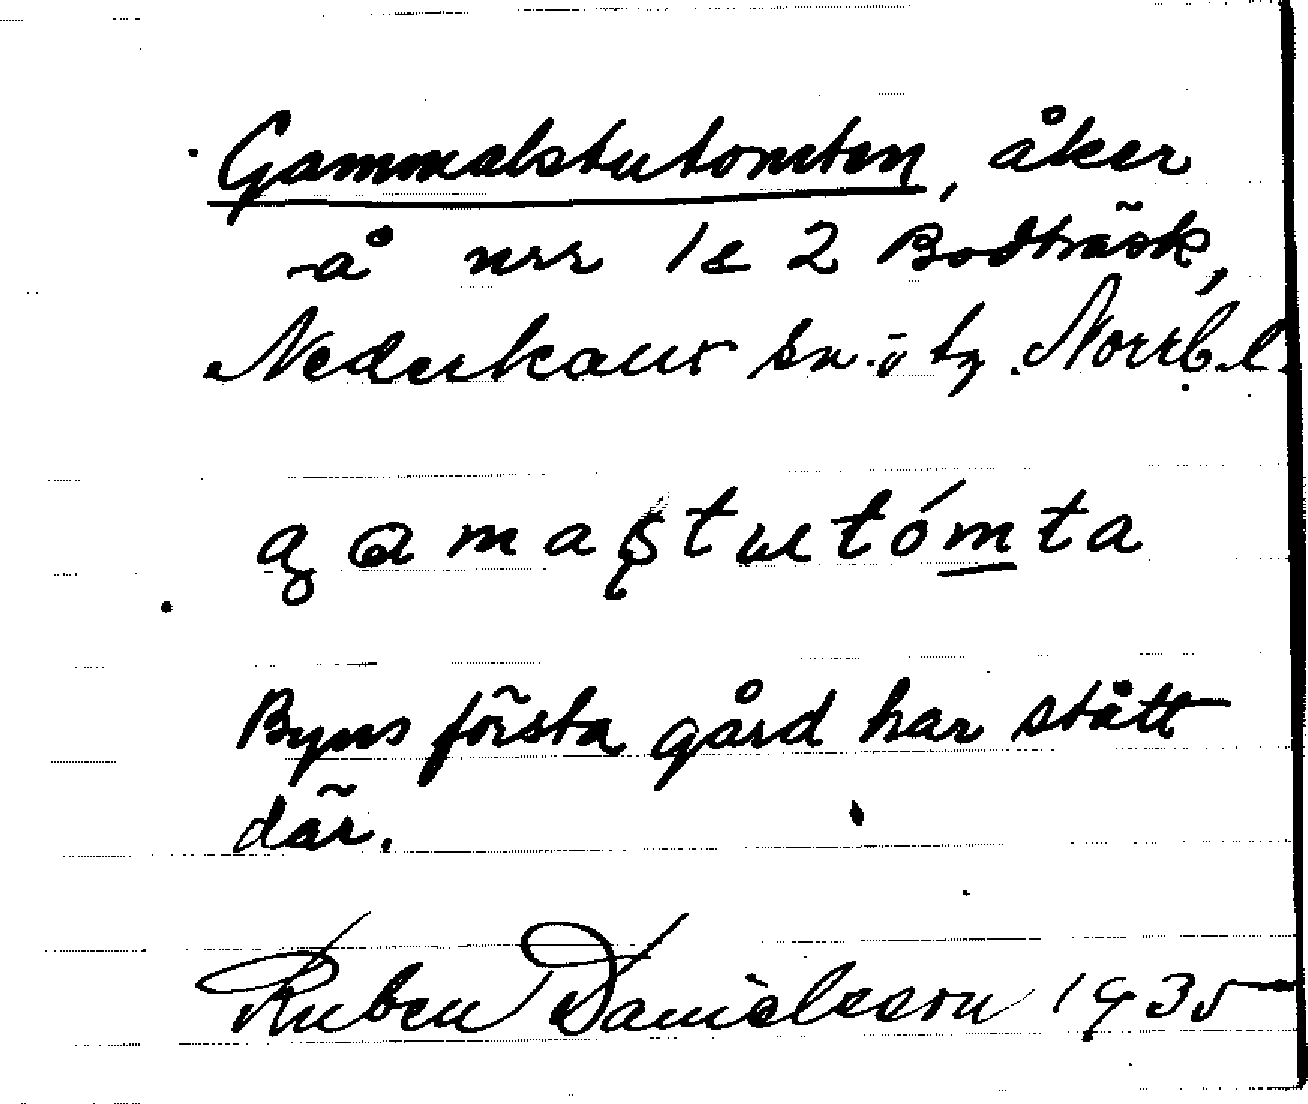 Gammalstutomten, åker
-å nrr 1 & 2 Bodträsk,
Nederkalix sn. o. tg. Norrb. l.
gamastutómta
Byns första gård har stått
där.
Ruben Danielsson 1935